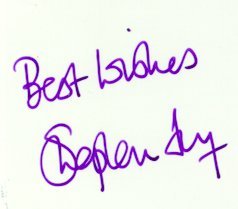 Best Wishes
Stephen Fry